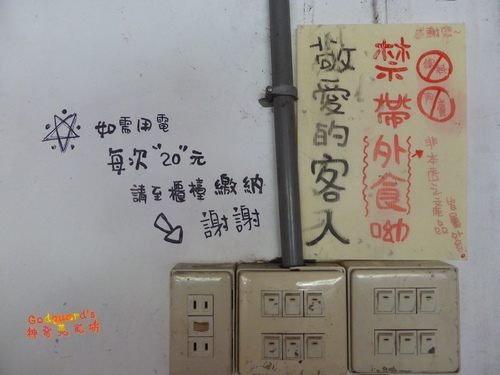 如需用電
每次"20"元
請至櫃檯繳納
謝謝
敬愛的客人
禁帶外食呦
非本店之產品
Godguard's